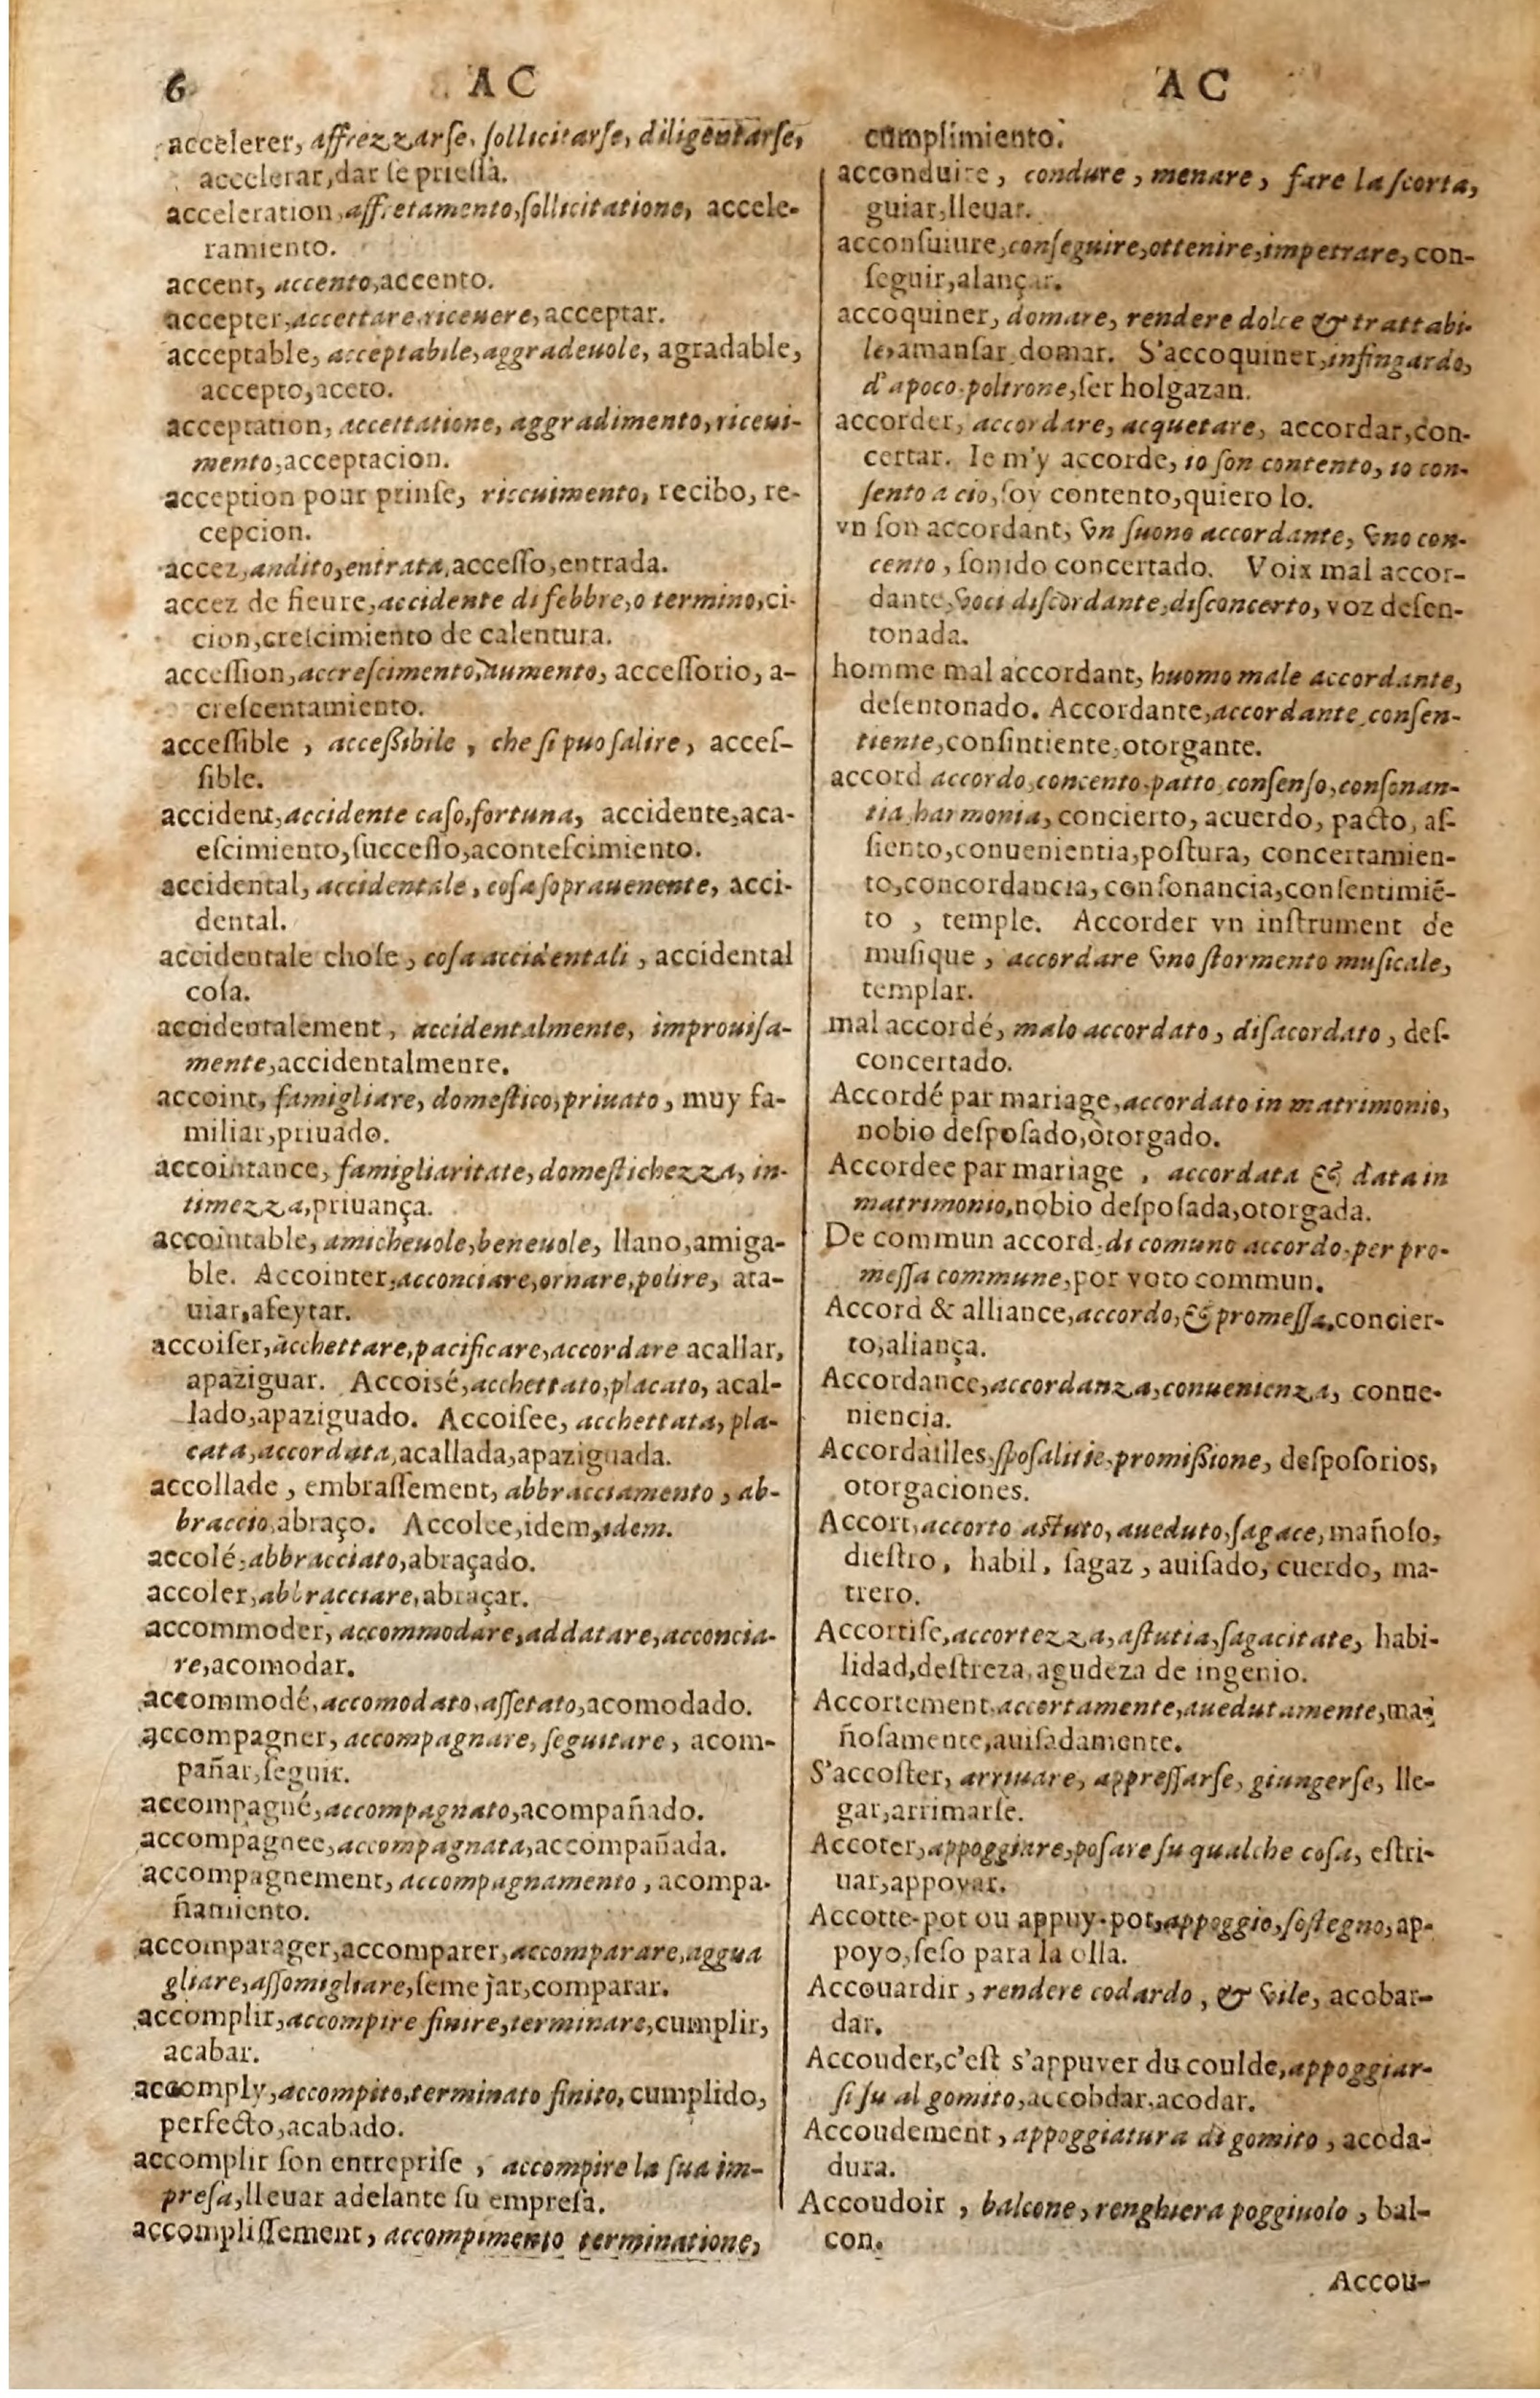 6 AC
accelerer, affrezzarſe, ſollicitarſe, diligentarſe,
accelerar,dar ſe prieſſa.
acceleration,affretamento,ſollicitatione, accele-
ramiento.
accent, accento,accento.
accepter,accettare,riceuere,acceptar.
acceptable, acceptabile,aggradeuole, agradable,
accepto,aceto.
acceptation, accettatione, aggradimento,riceui-
mento,acceptacion.
acception pour prinſe, riceuimento, recibo, re-
cepcion.
accez,andito,entrata,acceſſo,entrada.
accez de fieure,accidente di febbre,o termino,ci-
cion,creſcimiento de calentura.
acceſſion,accreſcimento,aumento, acceſſorio, a-
creſcentamiento.
acceſſible , acceßibile , che ſi puo ſalire, acceſ-
ſible.
accident,accidente caſo,fortuna, accidente,aca-
eſcimiento,ſucceſſo,aconteſcimiento.
accidental, accidentale, coſa ſoprauenente, acci-
dental.
accidentale choſe, coſa accidentali, accidental
coſa.
accidentalement, accidentalmente, improuiſa-
mente,accidentalmente.
accoint, famigliare, domeſtico,priuato, muy fa-
miliar,priuado.
accointance, famigliaritate, domeſtichezza, in-
timezza,priuança.
accointable, amicheuole,beneuole, llano,amiga-
ble. Accointer,acconciare,ornare,polire, ata-
uiar,afeytar.
accoiſer,acchettare,pacificare,accordare acallar,
apaziguar. Accoisé,acchettato,placato, acal-
lado,apaziguado. Accoiſee, acchettata, pla-
cata,accordata,acallada,apaziguada.
accollade, embraſſement, abbracciamento, ab-
braccio,abraço. Accolee,idem,idem.
accolé,abbracciato,abraçado.
accoler,abbracciare,abraçar.
accommoder, accommodare,addatare,acconcia-
re,acomodar.
accommodé,accomodato,aſſetato,acomodado.
accompagner, accompagnare, ſeguitare, acom-
pañar,ſeguir.
accompagné,accompagnato,acompañado.
accompagnee,accompagnata,accompañada.
accompagnement, accompagnamento, acompa-
ñamiento.
accomparager,accomparer,accomparare,aggua
gliare,aſſomigliare,ſemejar,comparar.
accomplir,accompire finire,terminare,cumplir,
acabar.
accomply,accompito,terminato finito,cumplido,
perfecto,acabado.
accomplir ſon entrepriſe, accompire la ſua im-
preſa,lleuar adelante ſu empreſa.
accompliſſement, accompimento terminatione,
AC
cumplimiento.
acconduire, condure, menare, fare la ſcorta,
guiar,lleuar.
acconſuiure,conſeguire,ottenire,impetrare,con-
ſeguir,alançar.
accoquiner, domare, rendere dolce & trattabi-
le,amanſar,domar. S'accoquiner,infingardo,
d'apoco,poltrone,ſer holgazan.
accorder, accordare, acquetare, accordar,con-
certar. Ie m'y accorde, io ſon contento, io con-
ſento a cio,ſoy contento,quiero lo.
vn ſon accordant, vn ſuono accordante, vno con-
cento, ſonido concertado. Voix mal accor-
dante,voci diſcordante,diſconcerto, voz deſen-
tonada.
homme mal accordant, huomo male accordante,
deſentonado. Accordante,accordante,conſen-
tiente,conſintiente,otorgante.
accord accordo,concento,patto,conſenſo,conſonan-
tia,harmonia, concierto, acuerdo, pacto, aſ-
ſiento,conuenientia,poſtura, concertamien-
to,concordancia,conſonancia,conſentimiẽ-
to , temple. Accorder vn inſtrument de
muſique, accordare vno ſtormento muſicale,
templar.
mal accordé, malo accordato, diſacordato, deſ-
concertado.
Accordé par mariage,accordato in matrimonio,
nobio deſpoſado,otorgado.
Accordee par mariage , accordata & data in
matrimonio,nobio deſpoſada,otorgada.
De commun accord,di comuno accordo,per pro-
meſſa commune,por voto commun.
Accord & alliance,accordo,& promeſſa,concier-
to,aliança.
Accordance,accordanza,conuenienza, conue-
niencia.
Accordailles,ſpoſalitie,promißione, deſpoſorios,
otorgaciones.
Accort,accorto aſtuto, aueduto,ſagace, mañoſo,
dieſtro, habil, ſagaz, auiſado, cuerdo, ma-
trero.
Accortiſe,accortezza,aſtutia,ſagacitate, habi-
lidad,deſtreza,agudeza de ingenio.
Accortement,accortamente,auedutamente,ma-
ñoſamente,auiſadamente.
S'accoſter, arriuare, appreſſarſe, giungerſe, lle-
gar,arrimarſe.
Accoter,appoggiare,poſare ſu qualche coſa, eſtri-
uar,appoyar.
Accotte-pot ou appuy-pot,appoggio,ſoſtegno,ap-
poyo,ſeſo para la olla.
Accouardir, rendere codardo, & vile, acobar-
dar.
Accouder,c'eſt s'appuyer du coulde,appoggiar-
ſi ſu al gomito,accobdar,acodar.
Accoudement, appoggiatura di gomito, acoda-
dura.
Accoudoir, balcone, renghiera poggiuolo, bal-
con.
Accou-